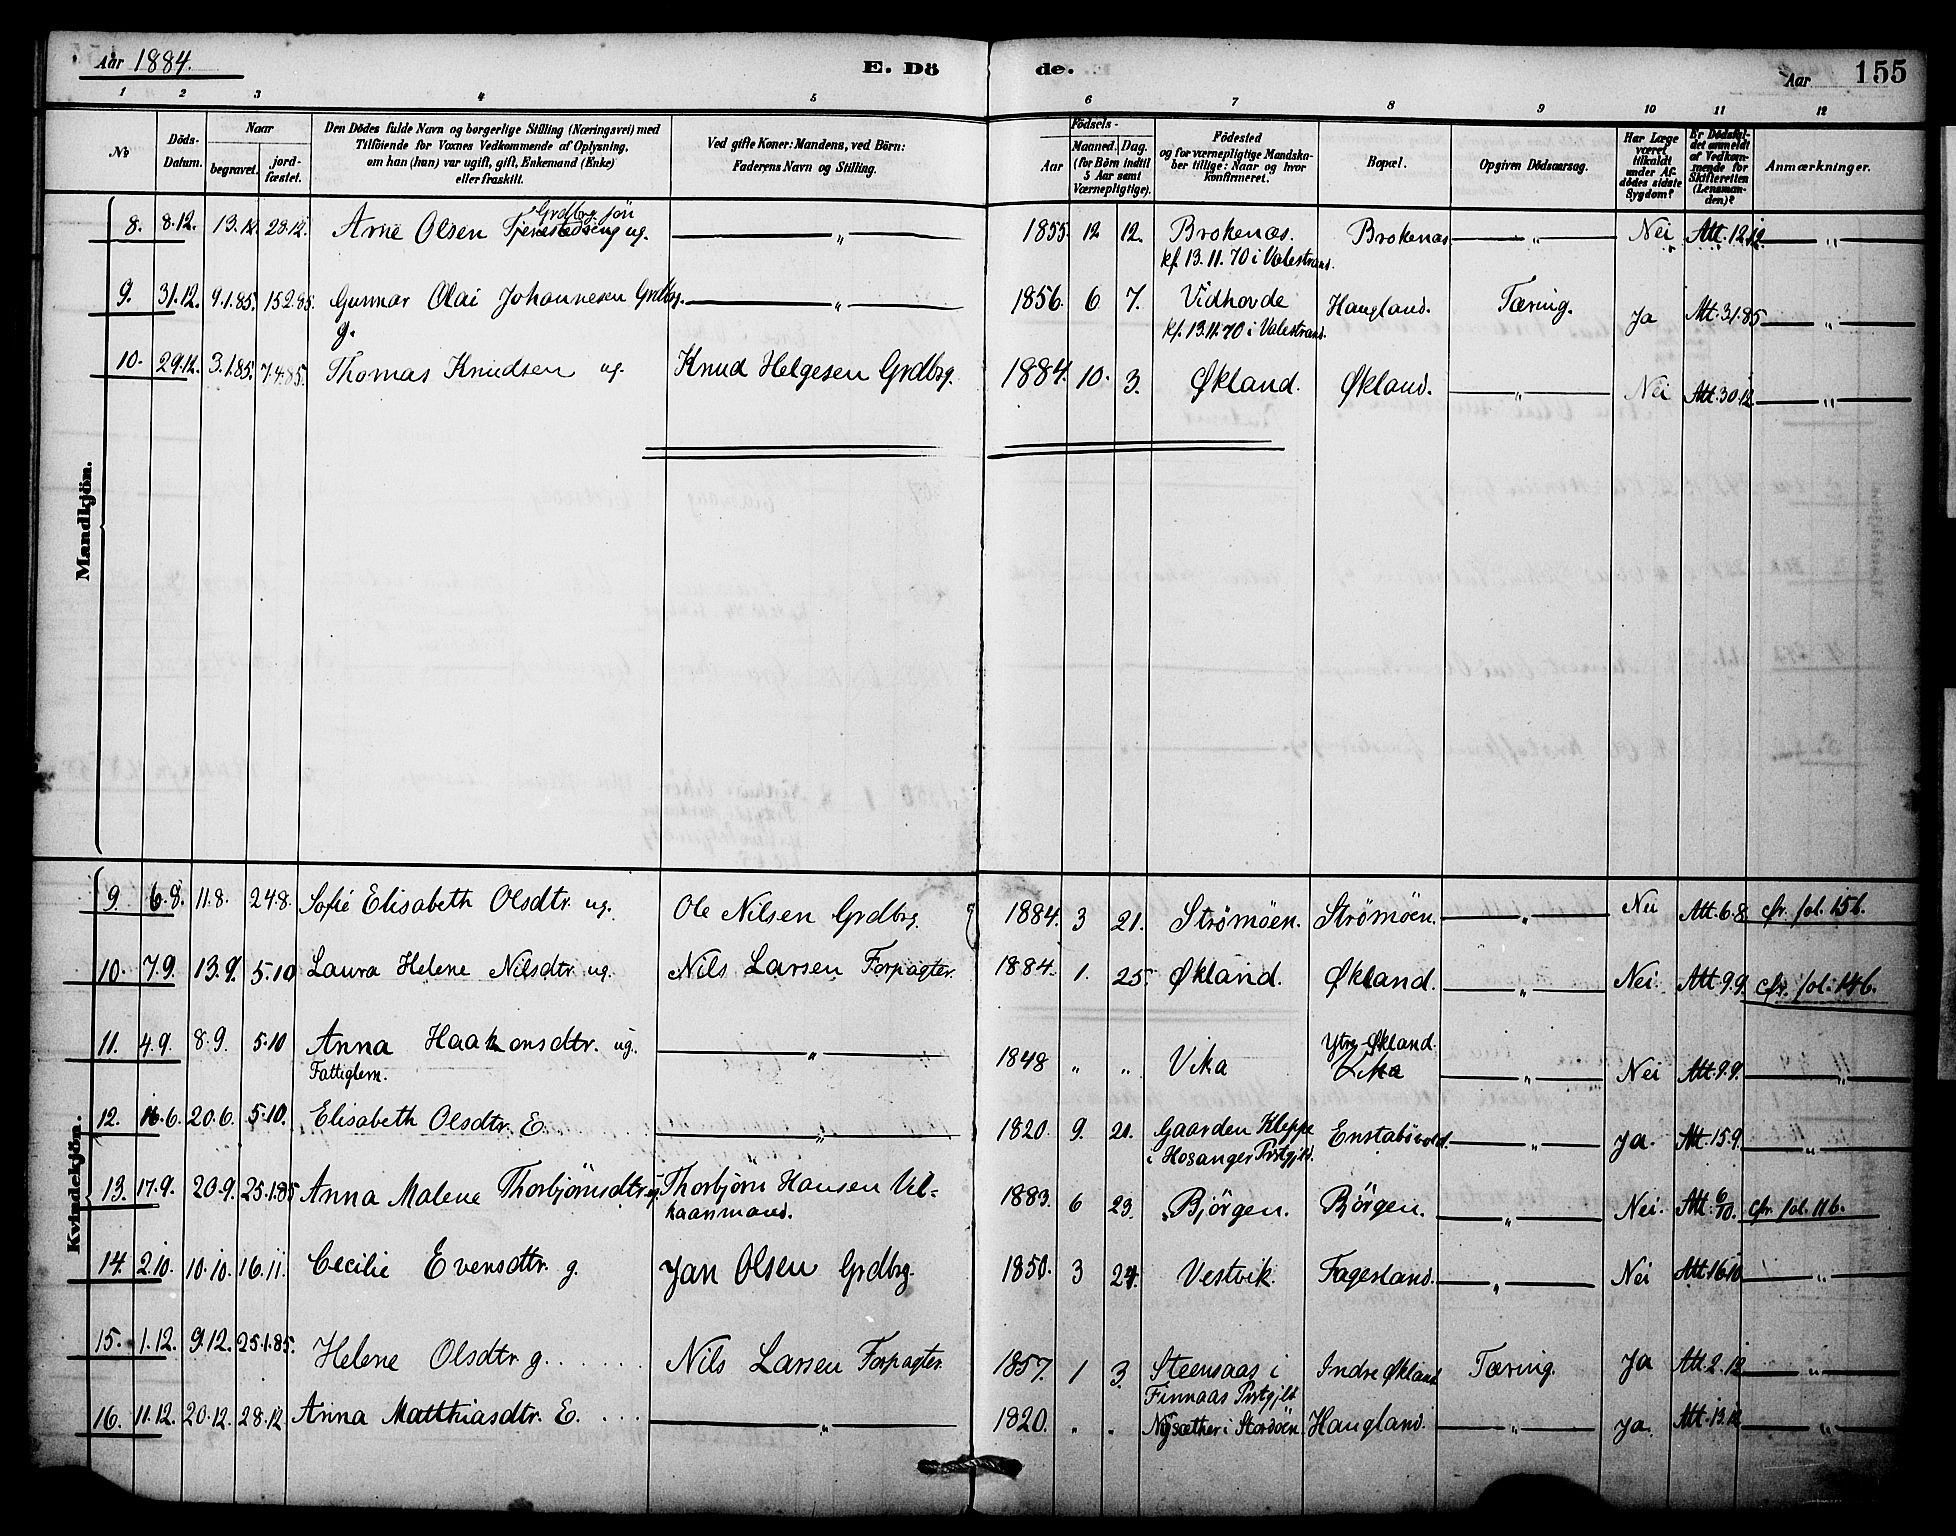 Aar 1884.
E. Dö de.
Aar 155
1 2 3 4 5 6 7 8 9 10 11 12
No
Döds-Datum.
Naar
begravet.
jord-fæstet.
Den Dödes fulde Navn og borgerlige Stilling (Næringsvei) med
Tilföiende for Voxnes Vedkommende af Oplysning,
om han (hun) var ugift, gift, Enkemand (Enke)
eller fraskilt.
Ved gifte Koner: Mandens, ved Börn:
Faderens Navn og Stilling.
Födsels-
Aar
Maaned. Dag.
(for Börn indtil
5 Aar samt
Værnepligtige).
Födested
og for værnepligtige Mandska-
ber tillige: Naar og hvor
konfirmeret.
Bopæl.
Opgiven Dödsaarsag.
Har Læge
været
tilkaldt
under Af-
dödes sidste
Sygdom?
Er Dödsfal-
det anmeldt
af Vedkom-
mende for
Skifteretten
(Lensman-
den)?
Anmærkninger.
Mandkjön.
Grdbrg. sön
8. 8.12. 13.12. 28.12. Arne Olsen ug. — „ — 1855. 12 12. Brokenæs. Brokenæs. — „ — Nei Att. 12.12. — „ —
kf. 13.11.70 i Valestrand.
9. 31.12. 9.1.85. 15.2.85. Gunnar Olai Johannesen Grdbrg. — „ — 1856. 6 7. Vidhovde Haugland. Tæring. Ja Att. 3.1.85 — „ —
g. kf. 13.11.70 i Valestrand.
10. 29.12. 3.1.85. 7.4.85. Thomas Knudsen ug. Knud Helgesen Grdbrg. 1884. 10. 3. Økland. Økland. — „ — Nei Att. 30.12. — „ —
Kvindekjön.
9. 6.8. 11.8. 24.8. Sofie Elisabeth Olsdtr. ug. Ole Nilsen Grdbrg. 1884. 3 21. Strømöen. Strømöen. — „ — Nei Att. 6.8. cfr. fol. 15b.
10. 7.9. 13.9. 5.10 Laura Helene Nilsdtr. ug. Nils Larsen Forpagter. 1884. 1. 25. Økland. Økland. — „ — Nei. Att. 9.9. cfr. fol. 14b.
Ytre Økland.
11. 4.9. 8.9. 5.10 Anna Haakonsdtr. ug. — „ — 1848 „ „ Vika Vika — „ — Nei Att. 9.9. — „ —
Fattiglem.
12. 16.6. 20.6. 5.10. Elisabeth Olsdtr. E. — „ — 1820. 9. 20. Gaarden Kleppe — „ — Ja. Att. 15.9. — „ —
i Hosanger Prstgjld.
13. 17.9. 20.9. 25.1.85 Anna Malene Thorbjörnsdtr. ug Thorbjörn Hansen Vel- 1883. 6 23. Bjórgen. Bjórgen. — „ — Nei. Att. 6/10. cfr. fol. 11b.
kaarsmand.
14. 2.10. 10.10. 16.11. Cecilie Evensdtr. g. Jan Olsen Grdbrg. 1850. 3 24. Vestvik. Fagerland. — „ — Nei Att. 16.10 — „ —
15. 1.12. 9.12. 25.1.85. Helene Olsdtr. g. Nils Larsen Forpagter. 1857. 1 3. Steensaas i Indre Økland Tæring. Ja Att. 2.12. — „ —
Finnaas Prstgjld.
16. 11.12. 20.12. 28.12 Anna Matthiasdtr. E. — „ — 1820. „ „ Nysæther i Stordöen. Haugland. — „ — Ja. Att. 13.12. — „ —